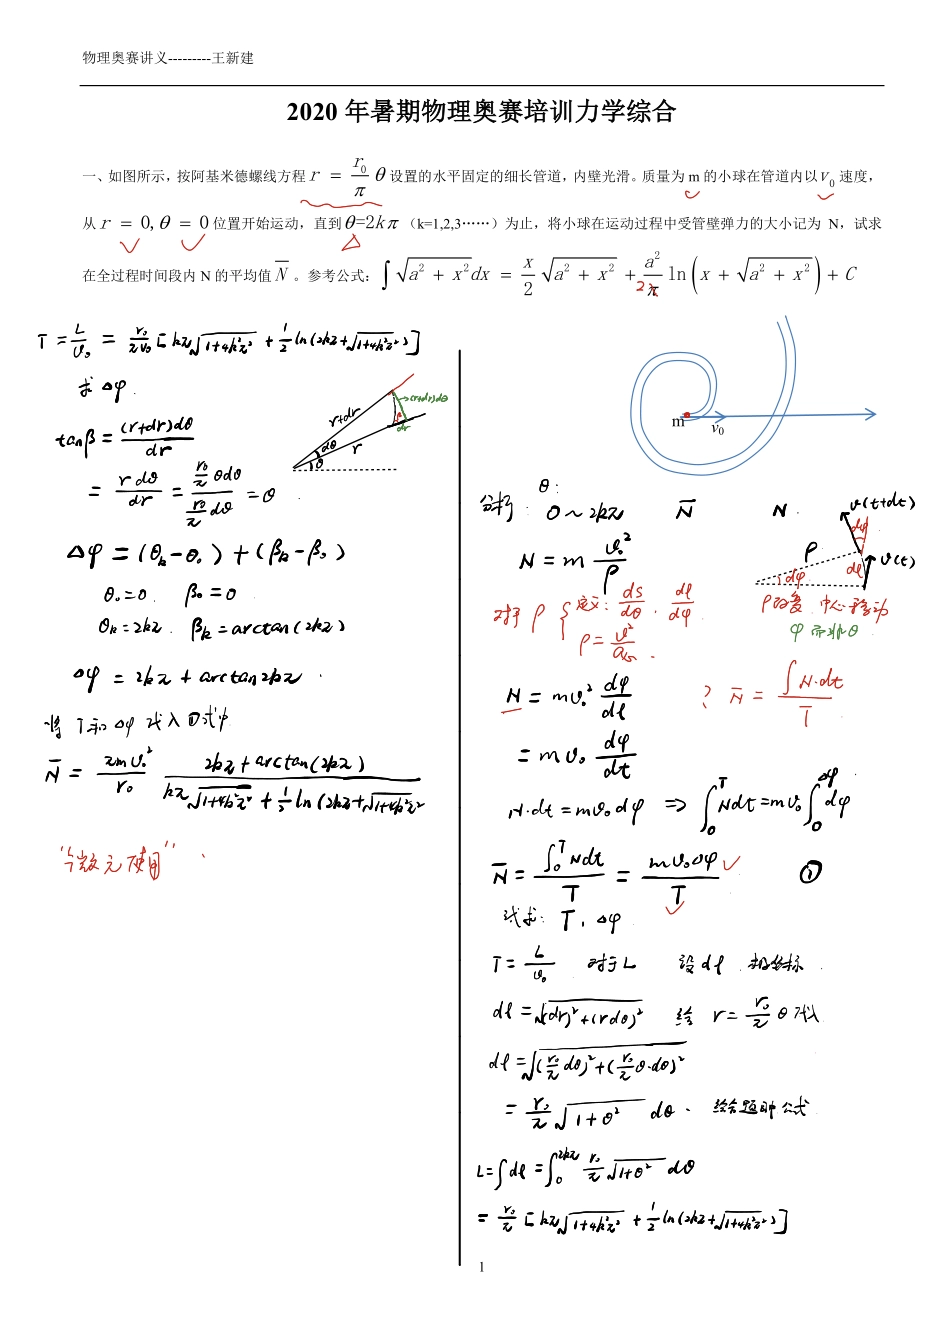 物理奥赛讲义---------王新建
2020 年暑期物理奥赛培训力学综合
一、如图所示，按阿基米德螺线方程 r = r₀/π θ 设置的水平固定的细长管道，内壁光滑。质量为 m 的小球在管道内以 v₀ 速度，
从 r = 0, θ = 0 位置开始运动，直到 θ=2kπ （k=1,2,3……）为止，将小球在运动过程中受管壁弹力的大小记为 N，试求
在全过程时间段内 N 的平均值 N̅ 。参考公式：∫√(a² + x²)dx = x/2 √(a² + x²) + a²/2 ln(x + √(a² + x²)) + C
T = L/v₀ = r₀/πv₀ [kπ√(1+4k²π²) + 1/2 ln(2kπ+√(1+4k²π²))]
求 Δφ.
tanβ = (r+dr)dθ/dr
= r dθ/dr = (r₀/π θdθ)/(r₀/π dθ) = θ
r+dr
(r+dr)dθ
β
dr
dθ
r
θ
Δφ = (θk-θ₀) + (βk-β₀)
θ₀=0. β₀=0
θk=2kπ. βk=arctan(2kπ)
Δφ = 2kπ + arctan2kπ.
将 T和Δφ 代入①式中
N̅ = πmv₀²/r₀ (2kπ+arctan(2kπ))/(kπ√(1+4k²π²) + 1/2 ln(2kπ+√(1+4k²π²)))
m
v₀
分析: θ: 0~2kπ N̅ N.
N = m v₀²/ρ
对于ρ { 定义: ds/dθ. dl/dφ
ρ = v²/a心.
v(t+dt)
dφ
ρ
dl
v(t)
dφ
中心移动
φ而非θ
N = mv₀² dφ/dl
? N̅ = ∫N·dt/T
= mv₀ dφ/dt
N·dt = mv₀dφ ⇒ ∫₀ᵀ Ndt = mv₀∫₀^Δφ dφ
N̅ = ∫₀ᵀ Ndt/T = mv₀Δφ/T ①
试求: T, Δφ
T = L/v₀ 对于L 设dl 极坐标
dl = √((dr)²+(rdθ)²) 给 r = r₀/π θ 代入
dl = √((r₀/π dθ)²+(r₀/π θ·dθ)²)
= r₀/π √(1+θ²) dθ. 结合题中公式
L = ∫dl = ∫₀^2kπ r₀/π √(1+θ²) dθ
= r₀/π [kπ√(1+4k²π²) + 1/2 ln(2kπ+√(1+4k²π²))]
1